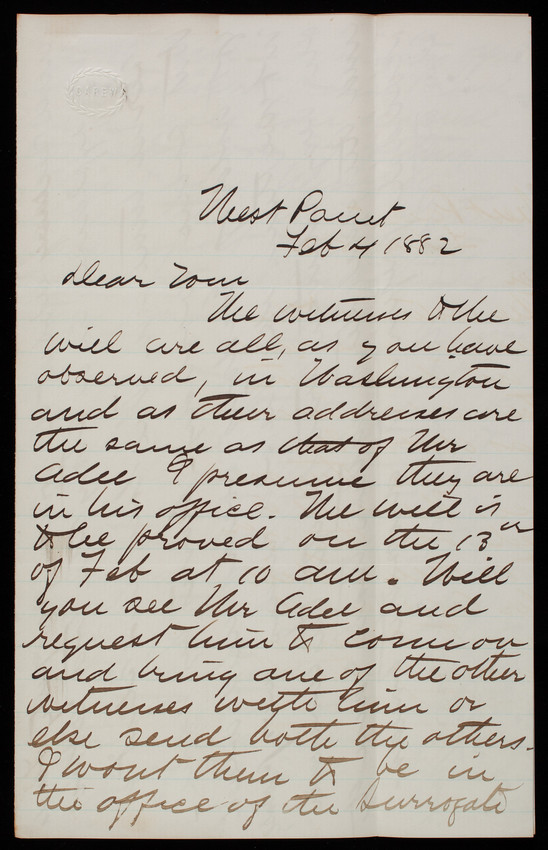 West Point
Feb 4 1882
Dear Tom
The witnesses to the
will are all, as you have
observed, in Washington
and as their addresses are
the same as that of Mr
Adee I presume they are
in his office. The will is
to be proved on the 13th
of Feb at 10 am. Will
you see Mr Adee and
request him to come on
and bring one of the other
witnesses with him or
else send both the others.
I want them to be in
the office of the Surrogate